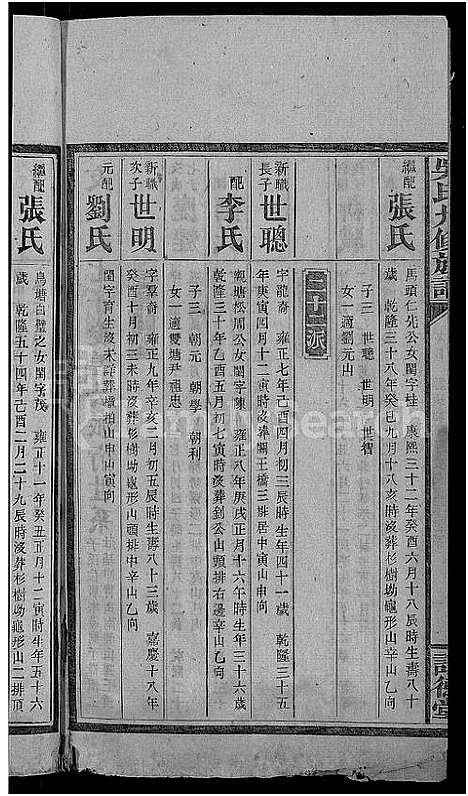 吳氏九修族譜
繼配
張氏
馬頭仁先公女閨字珪 康熙三十二年癸酉六月十八辰時生壽八十
歲 乾隆三十八年癸巳九月十八亥時沒葬杉樹坳龜形山辛山乙向
子三 世聰 世明 世智
女一適劉元山
二十二派
新職長子
世聰
字龍奇 雍正七年己酉四月初三辰時生年四十一歲 乾隆三十五
年庚寅四月十二寅時沒葬關王橋三排居中寅山申向
配
李氏
觀塘松周公女閨字陳 雍正八年庚戌正月十六午時生年三十六歲
乾隆三十年乙酉五月初七寅時沒葬到公山頭排右邊辛山乙向
子三 朝元 朝學 朝利
女一適雙塘尹祖忠
新職次子
世明
字羣奇 雍正九年辛亥二月初五辰時生壽八十三歲 嘉慶十八年
癸酉十月初三未時沒葬杉樹坳龜形山頭排中辛山乙向
元配
劉氏
閨字育生沒未詳葬塘柏山申山寅向
繼配
張氏
烏塘白壁之女閨字茂 雍正十一年癸丑正月十二寅時生年五十六
歲 乾隆五十四年己酉二月二十九辰時沒葬杉樹坳龜形山二排頂